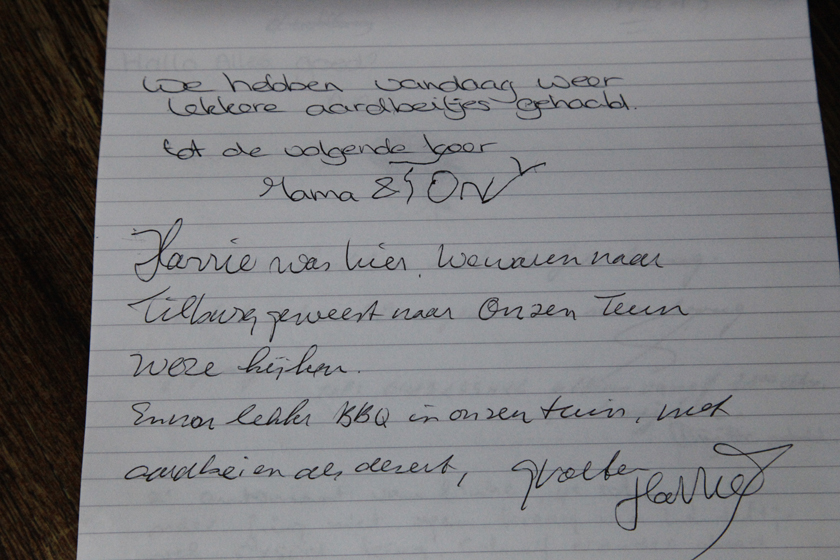 we hebben vandaag weer
lekkere aardbeitjes gehaald.
tot de volgende keer
Mama &
Harrie was hier. We waren naar
Tilburg geweest naar Onzen Teun
weze kijken.
lekker BBQ in onzen tuin, met
aardbeien als desert, groeten
Harrie